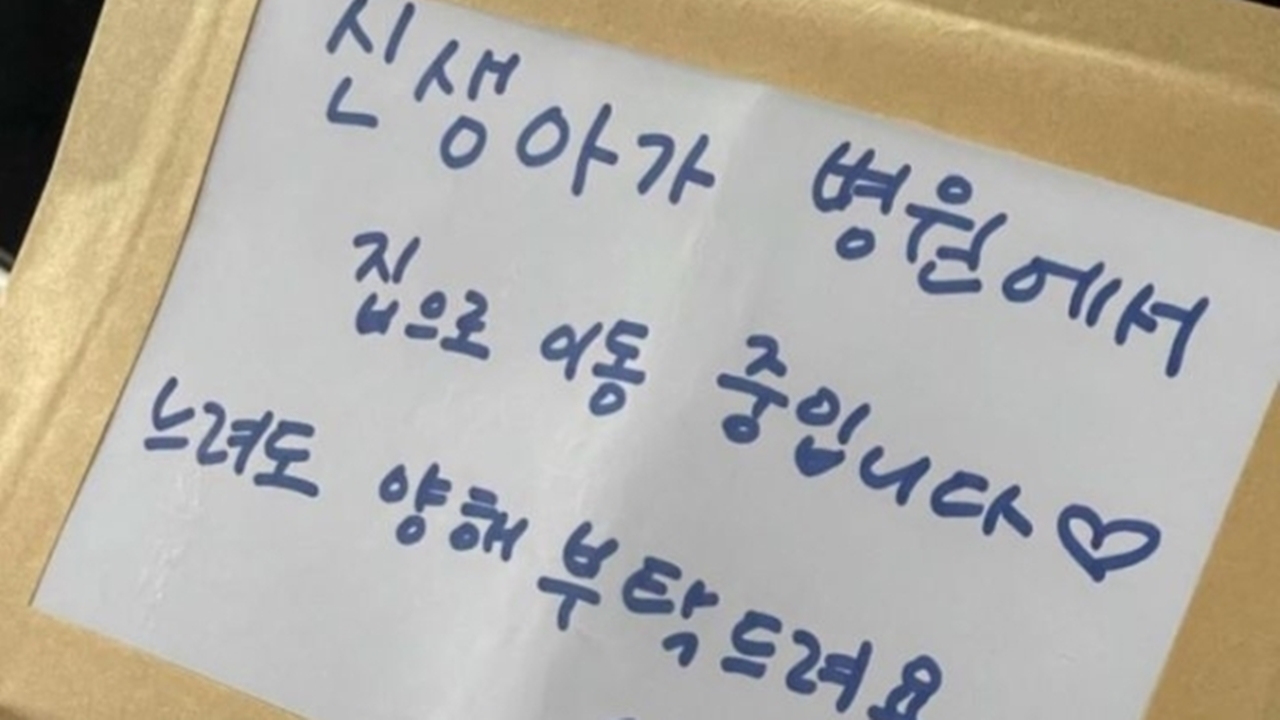 신생아가 병원에서
집으로 이동 중입니다♡
느려도 양해 부탁드려요